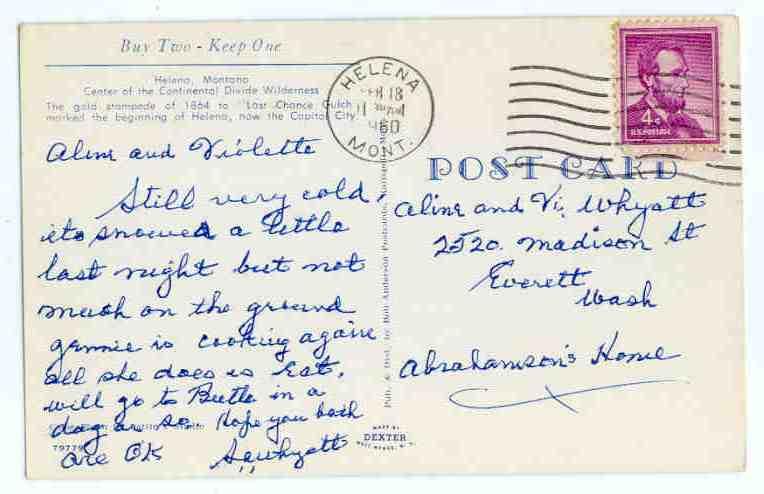 Buy Two - Keep One
Helena, Montana
Center of the Continental Divide Wilderness
The gold stampede of 1864 to "Last Chance Gulch
marked the beginning of Helena, now the Capital City
HELENA
18
1960
MONT.
4¢
U.S. POSTAGE
POST CARD
Aline and Violette
Still very cold,
its snowed a little
last night but not
much on the ground
is cooking again
all she does is Eat.
will go to Butte in a
day are so. Hope you both
are OK
Aline and Vi. Whyatt
2520. Madison St
Everett
Wash
Abrahamson's Home
Pub. & Dist. by Bob Anderson Postcards,
MADE BY
DEXTER